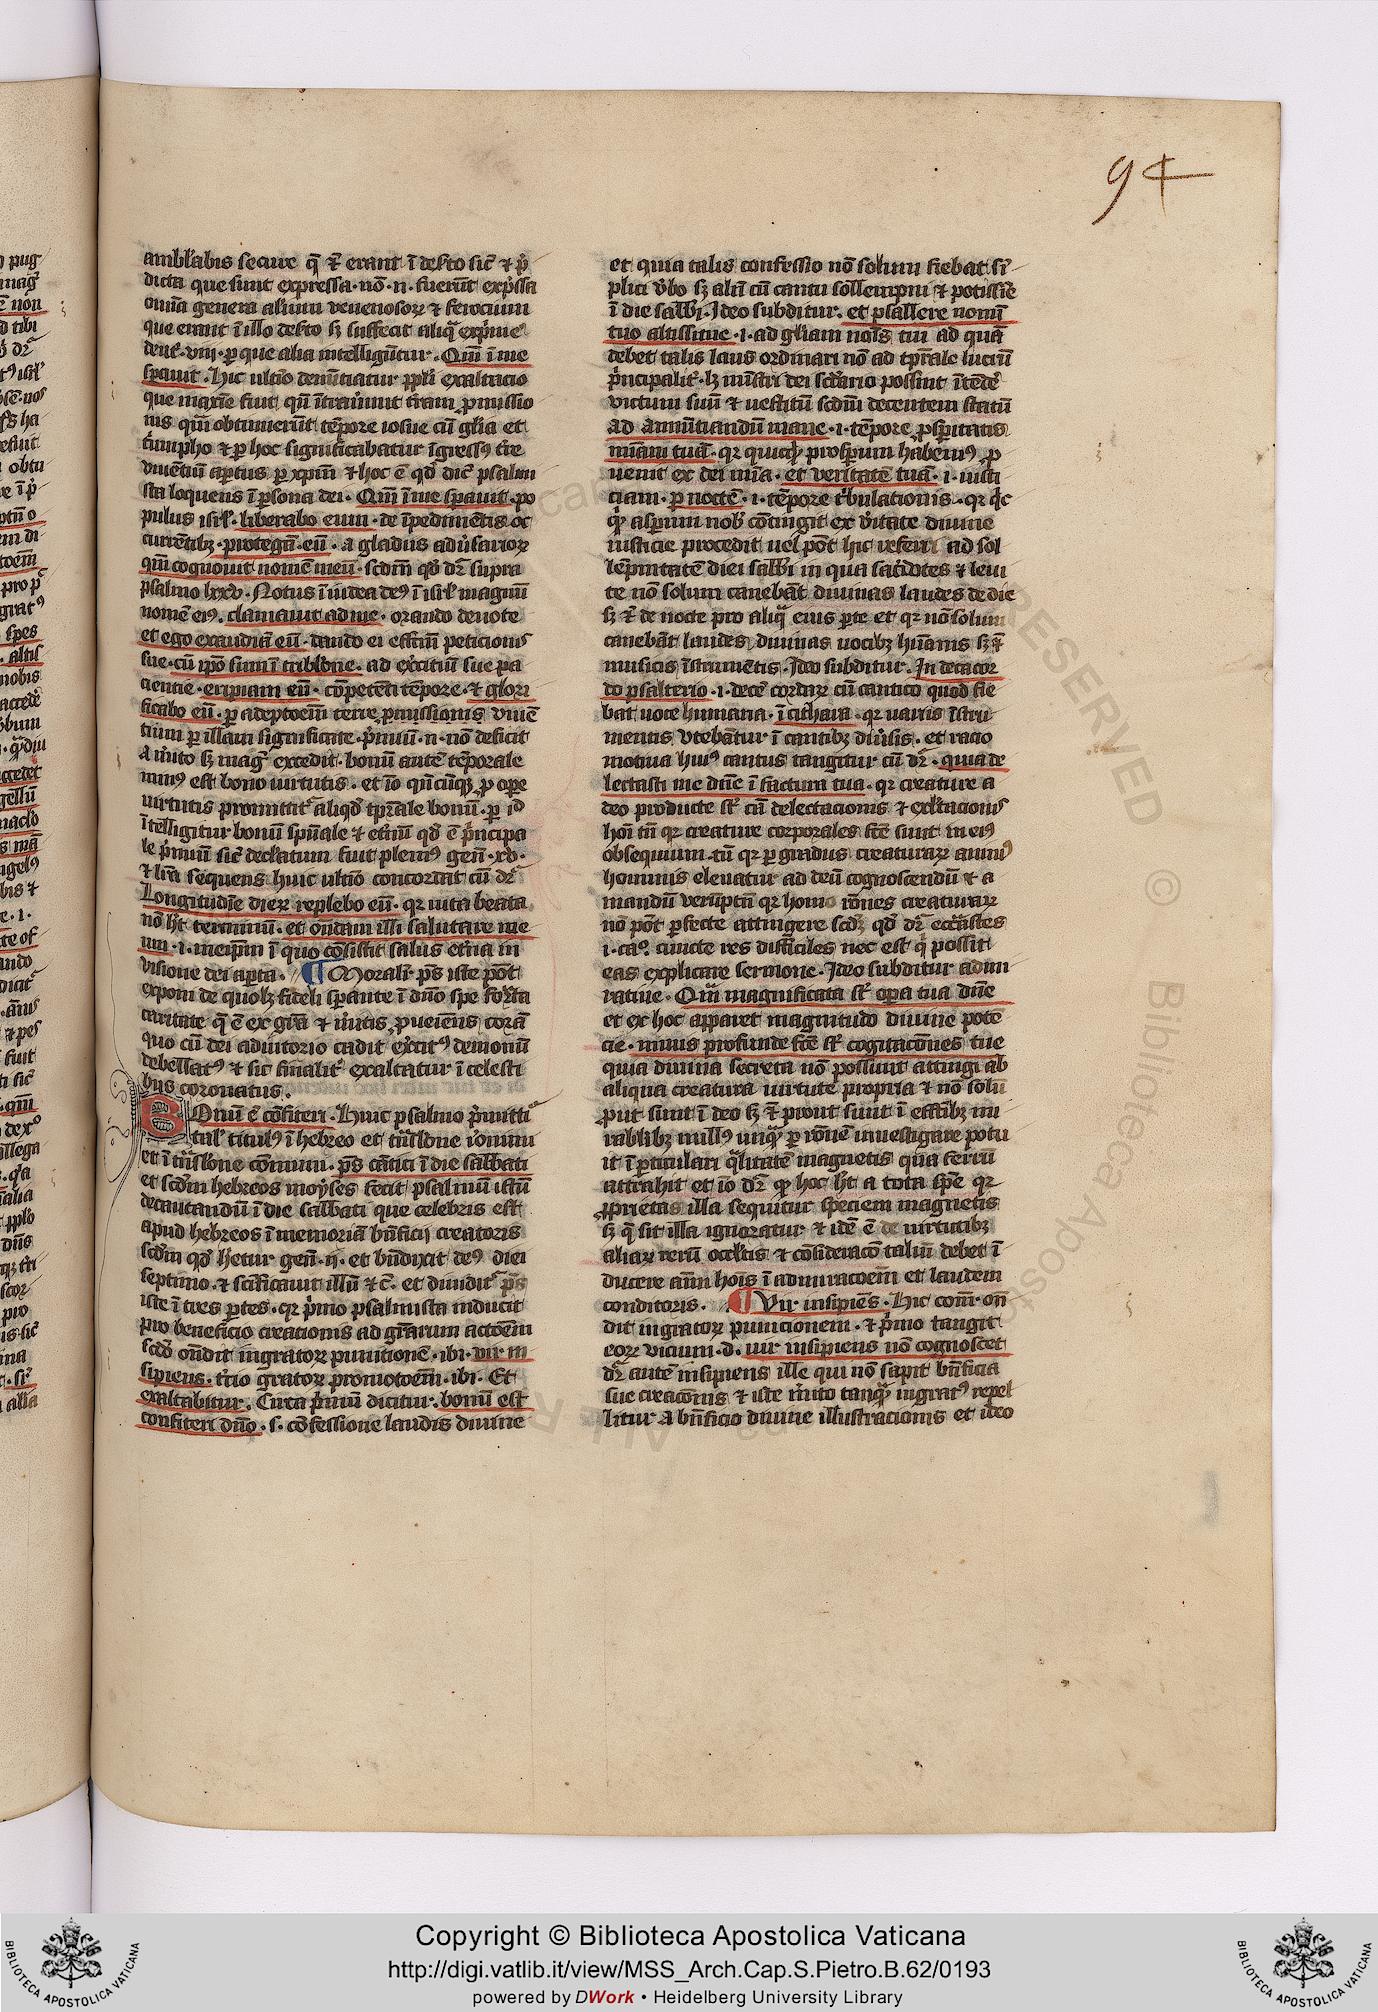 94
ambl'abis secure q̄ t̄ erant ī des̄to sic̄ ⁊ p̄
dicta que sunt expressa · nō · n · fuerūt exp̄ssa
omīa genera alium venenosoꝝ ⁊ ferocium
que erant ī illo des̄to sꝫ suffecit aliq̄ exp̄me
dent̄ · viii · ꝑ que alia intelligūtur · Qm̄ ī me
sꝑauit · Hic ultīo denūtiatur ppl̄i exaltacio
que maxīe fuit qn̄ ītrauiunt t̄ram ꝓmissio
nis qm̄ obtinuerūt tēpore iosue cū glīa et
t̄umpho ⁊ ꝑ hoc significabatur īgressꝰ t̄re
viuētiū aꝑtus ꝑ xp̄m ⁊ hoc ē qd̄ dic̄ psalmi
sta loquens ī ꝑsona dei · Qm̄ ī me sꝑauit · po
pulus isrl̄ · liberabo eum · de īpedimētis oc
currētibꝫ · protegā · eū · a gladiis adūsarioꝝ
qm̄ cognouit nomē meū · scd̄m qd̄ dr̄ supra
psalmo lxxv · Notus ī iudea deꝰ ī isrl̄ magnū
nomē eiꝰ · clamauit ad me · orando deuote
et ego exaudiā eū · dando ei effc̄m peticionis
sue · cū ip̄o sum ī tribl̄one · ad ex̄citiū sue pa
ciencie · eripiam eū · cōpetēti tēpore · ⁊ glori
ficabo eū · ꝑ adeptoēm terre ꝓmissionis viuē
tium ꝑ illam significate · p̄miū · n · nō deficit
a m̄ito sꝫ maḡ excedit · bonū autē tēporale
minꝰ est bono uirtutis · et iō qn̄cūqꝫ ꝓ oꝑe
uirtutis promittit̄ aliqd̄ tꝑrale bonū · ꝑ id
ītelligitur bonū spūale ⁊ et̄nū qd̄ ē p̄ncipa
le p̄miū sic̄ declatum fuit pleniꝰ gen̄ · xv ·
⁊ lr̄a sequens huic ultīo concordat cū dr̄
Longitudīe dieꝝ replebo eū · qr uita beata
nō ht̄ terminū · et ondam illi salutare me
um · i · meip̄m ī quo cōsistit salus et̄na in
visione dei aꝑta · ¶ Moralit̄ · ps̄ iste pōt
exponi de quolꝫ fideli sꝑante ī dn̄o spe for̄ta
caritate q̄ ē ex gr̄a ⁊ m̄itis ꝓueiēns corā
quo cū dei adiutorio cadit ex̄citꝰ demonū
debellatꝰ ⁊ sic finalit̄ exaltatur ī celesti
bus coronatus ·
Bonū ē cōfiteri · Huic psalmo p̄mitti
tur titulꝰ ī hebreo et tn̄slone iominu
et ī tn̄slone cōmuni · ps̄ cātici ī die sabbati
et scd̄m hebreos moyses fecit psalmū istū
decantandū ī die sabbati que celebris est
apud hebreos ī memoriā bn̄ficij creatoris
scd̄m qd̄ hetur gen̄ · ij · et bn̄dixit deꝰ diei
septimo · ⁊ scīficauit illū ⁊c̄ · et diuidit̄ ps̄
iste ī tres ꝑtes · qr p̄mo psalmista inducit
pro beneficio creationis ad gr̄arum actōem
scd̄o on̄dit ingratoꝝ punitionē · ibi · uir in
sipiens · t̄cio gratoꝝ promotoēm · ibi · Et
exaltabitur · Circa p̄mū dicitur · bonū est
confiteri dn̄o · s · cōfessione laudis diuine
et quia talis confessio nō solum fiebat sī
plici ūbo sꝫ etiā cū cantu sollempni ⁊ potissīe
ī die sabb̄i · Ideo subditur · et psallere nomī
tuo altissime · i · ad gl̄iam noīs tui ad quā
debet talis laus ordinari nō ad tꝑrale lucrū
p̄ncipalit̄ · lꝫ mīstri dei scd̄ario possint ītēdē
victum suū ⁊ uestitū scd̄m decentem statū
ad annūtiandū mane · i · tēpore ꝓsꝑitatis
mīam tuā · qr quicq̄d prosꝑum habemꝰ ꝓ
uenit ex dei mīa · et veritatē tuā · i · iusti
ciam · ꝑ noctē · i · tēpore t̄bulationis · qr q̄c
q̄d asꝑum nob̄ cōtingit ex ūitate diuine
iusticie procedit uel pōt hic referri ad sol
lēpnitatē diei sabb̄i in qua sac̄dotes ⁊ leui
te nō solum canebāt diuinas laudes de die
sꝫ t̄ de nocte pro aliq̄ eius ꝑte et qr nō solum
canebāt laudes diuinas uocibꝫ hūanis sꝫ t̄
musicis īstrumētis · Ideo subditur · In decacor
do psalterio · i · decē cordaꝝ cū cantico quod fie
bat uoce humana · ī cithara · qr uariis īstru
mentis vtebātur ī canticis diūsis · et racio
motiua huiꝰ cantus tangitur cū dr̄ · quia de
lectasti me dn̄e ī factura tua · qr creature a
deo producte sīt cā delectacionis ⁊ exl̄tacionis
hoī tū qr creature corporales fc̄e sunt in eiꝰ
obsequium · tū qr ꝑ gradus creaturaꝝ animꝰ
hominis eleuatur ad deū cognoscendū ⁊ a
mandū veruptū qr homo rōnes creaturaꝝ
nō pōt ꝑfecte attingere scd̄ꝫ qd̄ dr̄ eccl̄astes
i · ca° · cuncte res difficiles nec est q̄ possit
eas explicare sermone · Ideo subditur admi
ratiue · Qm̄ magnificata sīt oꝑa tua dn̄e
et ex hoc apparet magnitudo diuine potē
cie · nimis profunde fc̄e sīt cogitacōnes tue
quia diuina secreta nō possunt attingi ab
aliqua creatura uirtute propria ⁊ nō solū
put sunt ī deo sꝫ t̄ prout sunt ī effc̄ibꝫ mi
rabl̄ibꝫ nullꝰ unq̄ ꝑ rōnē inuestigare potu
it ī ꝑticulari q̄litatē magnetis qua ferrū
attrahit et iō dr̄ qd̄ hoc ht̄ a tota spē qr
ꝓprietas illa sequitur speciem magnetis
sꝫ q̄ sit illa ignoratur ⁊ idē ē de uirtutibꝫ
aliaꝝ rerū occl̄tis ⁊ cōsideracō taliū debet ī
ducere aīm hoīs ī admiratoēm et laudem
conditoris · ¶ Vir insipiēs · Hic cōnt̄ · on̄
dit ingratoꝝ punicionem · ⁊ p̄mo tangit
eoꝝ vicium · d · uir insipiens nō cognoscet
dr̄ autē insipiens ille qui nō sapit bn̄ficia
sue creacōnis ⁊ iste m̄ito tanq̄ ingratꝰ repel
litur a bn̄ficio diuine illustracionis et ideo
Copyright © Biblioteca Apostolica Vaticana
http://digi.vatlib.it/view/MSS_Arch.Cap.S.Pietro.B.62/0193
powered by DWork • Heidelberg University Library
BIBLIOTECA APOSTOLICA VATICANA
BIBLIOTECA APOSTOLICA VATICANA